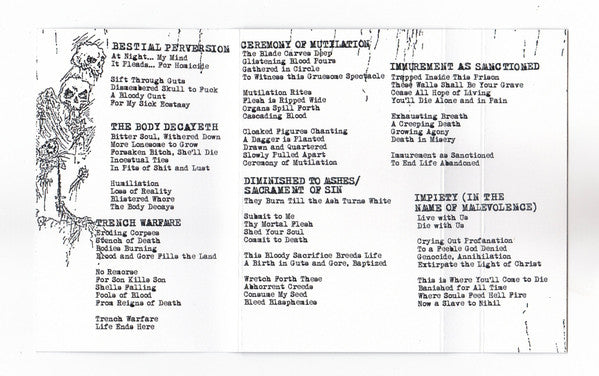 BESTIAL PERVERSION
At Night... My Mind
It Pleads... For Homicide
Sift Through Guts
Dismembered Skull to Fuck
A Bloody Cunt
For My Sick Ecstasy
THE BODY DECAYETH
Bitter Soul, Withered Down
More Lonesome to Grow
Forsaken Bitch, She'll Die
Incestual Ties
In Fits of Shit and Lust
Humiliation
Loss of Reality
Blistered Whore
The Body Decays
TRENCH WARFARE
Eroding Corpses
Stench of Death
Bodies Burning
Blood and Gore Fills the Land
No Remorse
For Son Kills Son
Shells Falling
Pools of Blood
From Reigns of Death
Trench Warfare
Life Ends Here
CEREMONY OF MUTILATION
The Blade Carves Deep
Glistening Blood Pours
Gathered in Circle
To Witness this Gruesome Spectacle
Mutilation Rites
Flesh is Ripped Wide
Organs Spill Forth
Cascading Blood
Cloaked Figures Chanting
A Dagger is Planted
Drawn and Quartered
Slowly Pulled Apart
Ceremony of Mutilation
DIMINISHED TO ASHES/
SACRAMENT OF SIN
They Burn Till the Ash Turns White
Submit to Me
Thy Mortal Flesh
Shed Your Soul
Commit to Death
This Bloody Sacrifice Breeds Life
A Birth in Guts and Gore, Baptized
Wretch Forth These
Abhorrent Creeds
Consume My Seed
Bleed Blasphemies
IMMUREMENT AS SANCTIONED
Trapped Inside This Prison
These Walls Shall Be Your Grave
Cease All Hope of Living
You'll Die Alone and in Pain
Exhausting Breath
A Creeping Death
Growing Agony
Death in Misery
Immurement as Sanctioned
To End Life Abandoned
IMPIETY (IN THE
NAME OF MALEVOLENCE)
Live with Us
Die with Us
Crying Out Profanation
To a Feeble God Denied
Genocide, Annihilation
Extirpate the Light of Christ
This is Where You'll Come to Die
Banished for All Time
Where Souls Feed Hell Fire
Now a Slave to Nihil